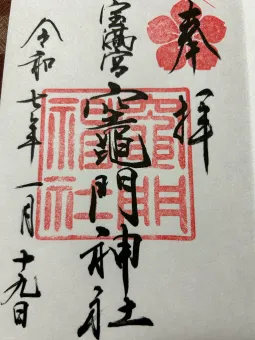 奉拝
宝満宮
竈門神社
竈門
神社
令和七年一月十九日